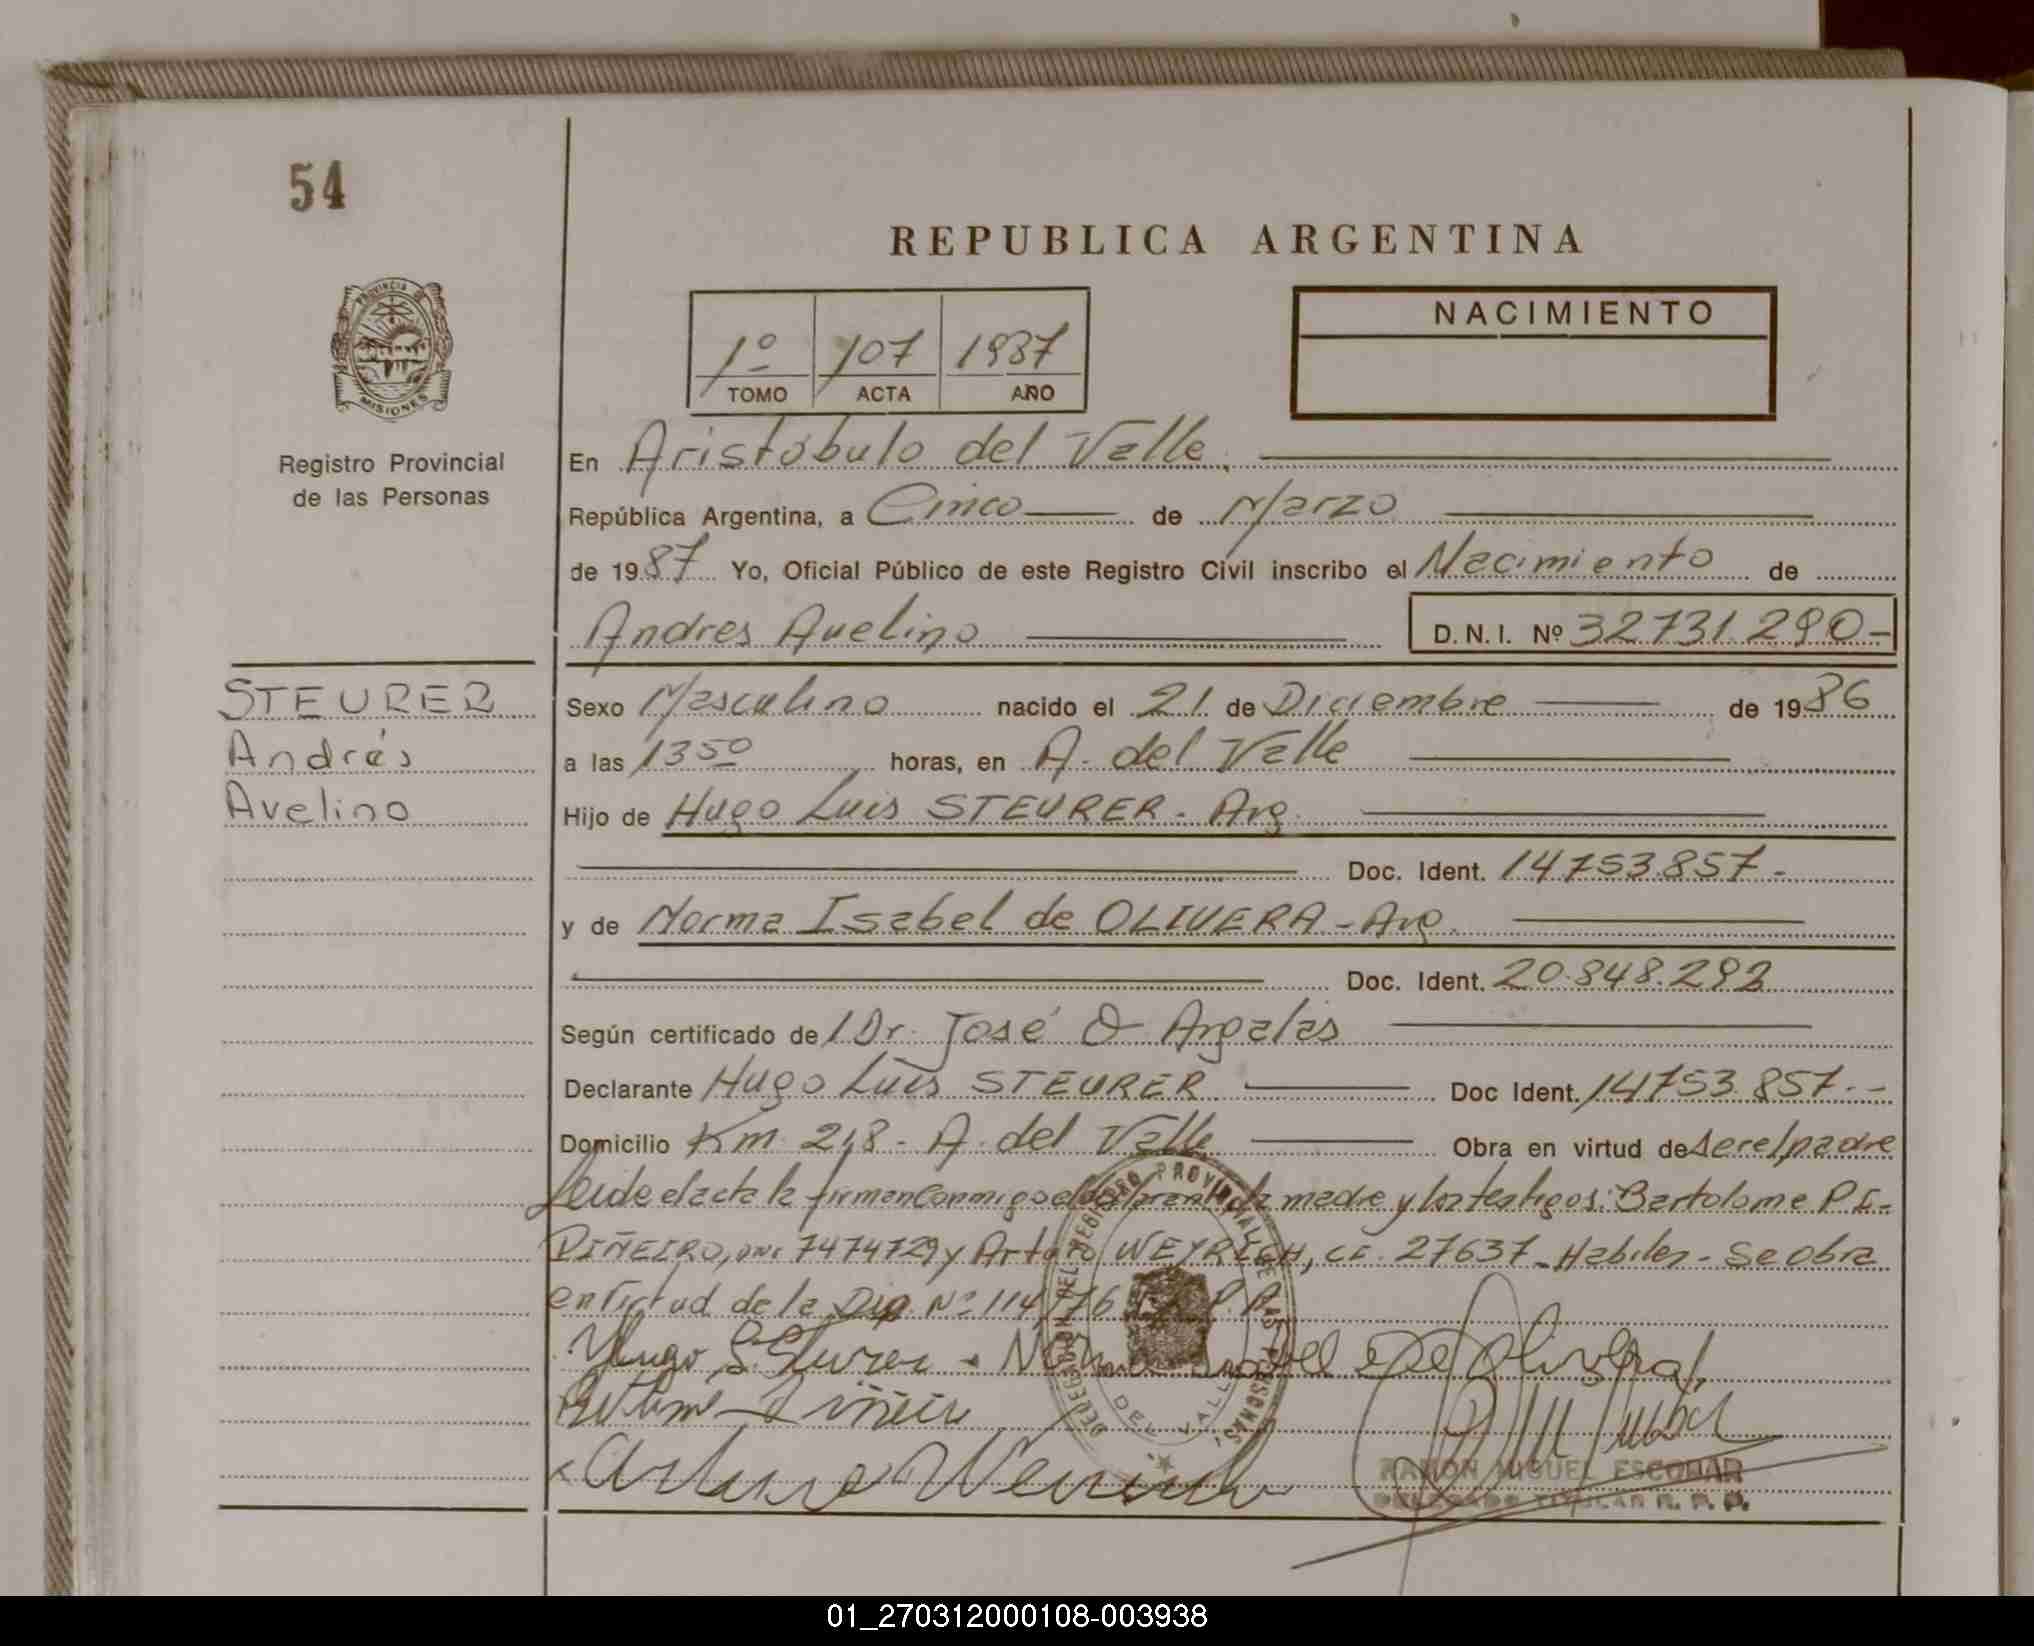 54
REPUBLICA ARGENTINA
PROVINCIA DE
MISIONES
Registro Provincial
de las Personas
NACIMIENTO
1º 107 1987
TOMO ACTA AÑO
En Aristóbulo del Valle,
República Argentina, a Cinco de Marzo
de 1987 Yo, Oficial Público de este Registro Civil inscribo el Nacimiento de
Andres Avelino D.N.I. Nº 32731.290-
STEURER
Andrés
Avelino
Sexo Masculino nacido el 21 de Diciembre de 1986
a las 1350 horas, en A. del Valle
Hijo de Hugo Luis STEURER - Arg.
Doc. Ident. 14753.857-
y de Norma Isabel de OLIVERA - Arg.
Doc. Ident. 20.848.292
Según certificado del Dr. José O Argalas
Declarante Hugo Luis STEURER Doc Ident. 14753.857.-
Domicilio Km. 218 - A. del Valle Obra en virtud de ser el padre
Leida el acta la firman conmigo el declarante, la madre y los testigos: Bartolome PI-
ÑEIRO, DNI 7474729 y Arturo WEYRICH, C.I. 27637 - Habiles - Se obra
en virtud de la Disp. Nº 114/76
Hugo L. Steurer - Norma Isabel de Olivera
Arturo
RAMON MIGUEL ESCOBAR
DELEGADO TITULAR R. P. P.
DELEGACION DEL REGISTRO PROVINCIAL DE LAS PERSONAS
DEL VALLE
01_270312000108-003938